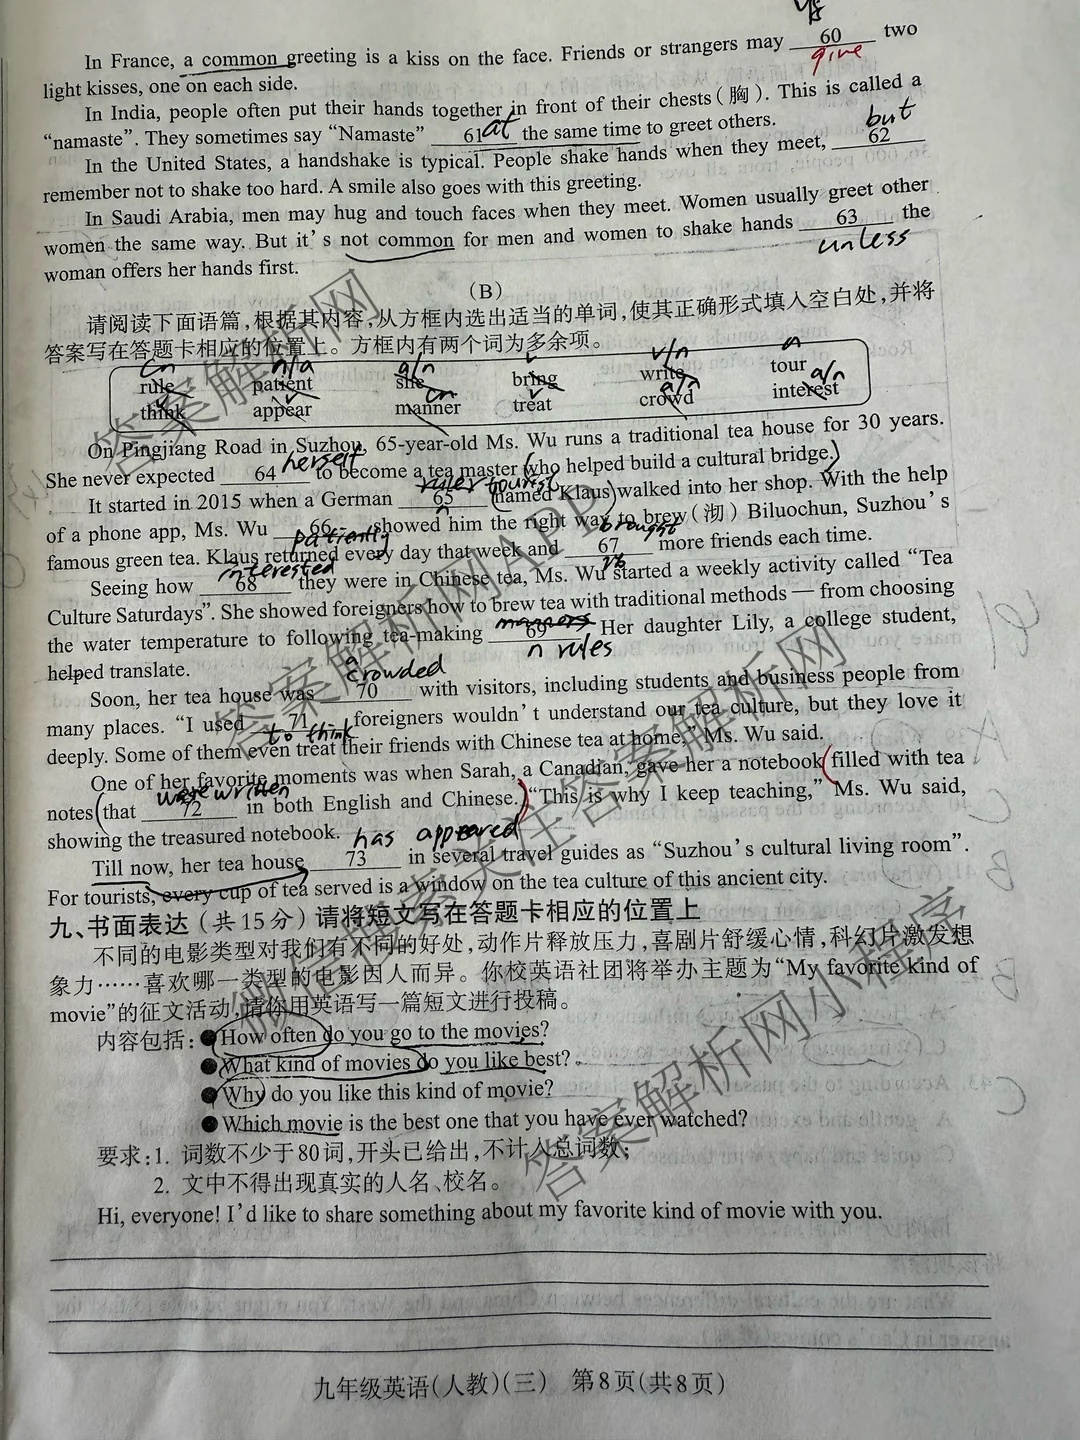 In France, a common greeting is a kiss on the face. Friends or strangers may 60 two
give
light kisses, one on each side.
In India, people often put their hands together in front of their chests(胸). This is called a
“namaste”. They sometimes say “Namaste” 61 at the same time to greet others.
but
In the United States, a handshake is typical. People shake hands when they meet, 62
remember not to shake too hard. A smile also goes with this greeting.
In Saudi Arabia, men may hug and touch faces when they meet. Women usually greet other
women the same way. But it’s not common for men and women to shake hands 63 the
unless
woman offers her hands first.
(B)
请阅读下面语篇,根据其内容,从方框内选出适当的单词,使其正确形式填入空白处,并将
答案写在答题卡相应的位置上。方框内有两个词为多余项。
cn n/a a/n v v/n n
rule patient she bring write tour
v v cn v a/n a/n
think appear manner treat crowd interest
On Pingjiang Road in Suzhou, 65-year-old Ms. Wu runs a traditional tea house for 30 years.
herself
She never expected 64 to become a tea master who helped build a cultural bridge.
ruler tourist
It started in 2015 when a German 65 named Klaus walked into her shop. With the help
n
of a phone app, Ms. Wu 66 showed him the right way to brew(沏) Biluochun, Suzhou’s
patiently brought
famous green tea. Klaus returned every day that week and 67 more friends each time.
interested
Seeing how 68 they were in Chinese tea, Ms. Wu started a weekly activity called “Tea
Culture Saturdays”. She showed foreigners how to brew tea with traditional methods — from choosing
manners
the water temperature to following tea-making 69 Her daughter Lily, a college student,
n rules
helped translate.
a
crowded
Soon, her tea house was 70 with visitors, including students and business people from
many places. “I used 71 foreigners wouldn’t understand our tea culture, but they love it
to think
deeply. Some of them even treat their friends with Chinese tea at home,” Ms. Wu said.
One of her favorite moments was when Sarah, a Canadian, gave her a notebook filled with tea
were written
notes that 72 in both English and Chinese. “This is why I keep teaching,” Ms. Wu said,
showing the treasured notebook.
has appeared
Till now, her tea house 73 in several travel guides as “Suzhou’s cultural living room”.
For tourists, every cup of tea served is a window on the tea culture of this ancient city.
九、书面表达(共15分)请将短文写在答题卡相应的位置上
不同的电影类型对我们有不同的好处,动作片释放压力,喜剧片舒缓心情,科幻片激发想
象力……喜欢哪一类型的电影因人而异。你校英语社团将举办主题为“My favorite kind of
movie”的征文活动,请你用英语写一篇短文进行投稿。
内容包括:●How often do you go to the movies?
●What kind of movies do you like best?
●Why do you like this kind of movie?
●Which movie is the best one that you have ever watched?
要求:1. 词数不少于80词,开头已给出,不计入总词数;
2. 文中不得出现真实的人名、校名。
Hi, everyone! I’d like to share something about my favorite kind of movie with you.
九年级英语(人教)(三) 第8页(共8页)
答案解析网
答案解析网APP
微信搜索关注答案解析网
答案解析网小程序